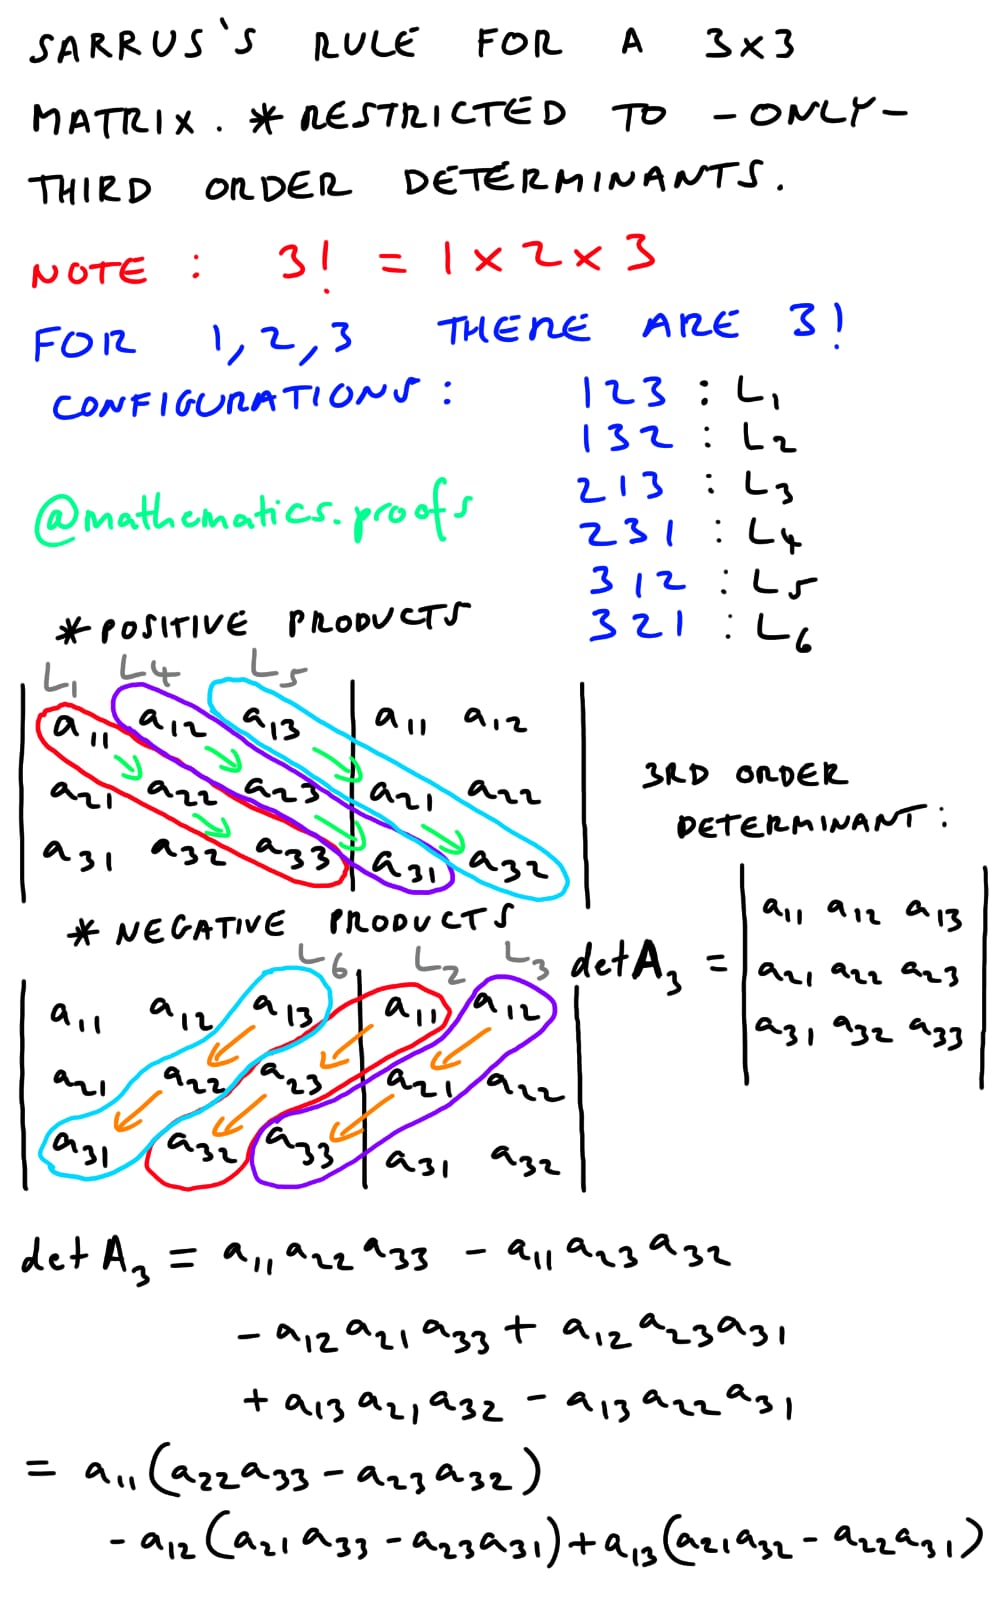 SARRUS'S RULE FOR A 3x3
MATRIX. * RESTRICTED TO -ONLY-
THIRD ORDER DETERMINANTS.
NOTE : 3! = 1 x 2 x 3
FOR 1, 2, 3 THERE ARE 3!
CONFIGURATIONS :
123 : L1
132 : L2
213 : L3
231 : L4
312 : L5
321 : L6
@mathematics.proofs
* POSITIVE PRODUCTS
L1 L4 L5
a11 a12 a13 a11 a12
a21 a22 a23 a21 a22
a31 a32 a33 a31 a32
* NEGATIVE PRODUCTS
L6 L2 L3
a11 a12 a13 a11 a12
a21 a22 a23 a21 a22
a31 a32 a33 a31 a32
3RD ORDER
DETERMINANT :
detA3 =
a11 a12 a13
a21 a22 a23
a31 a32 a33
detA3 = a11 a22 a33 - a11 a23 a32
- a12 a21 a33 + a12 a23 a31
+ a13 a21 a32 - a13 a22 a31
= a11 (a22 a33 - a23 a32)
- a12 (a21 a33 - a23 a31) + a13 (a21 a32 - a22 a31)